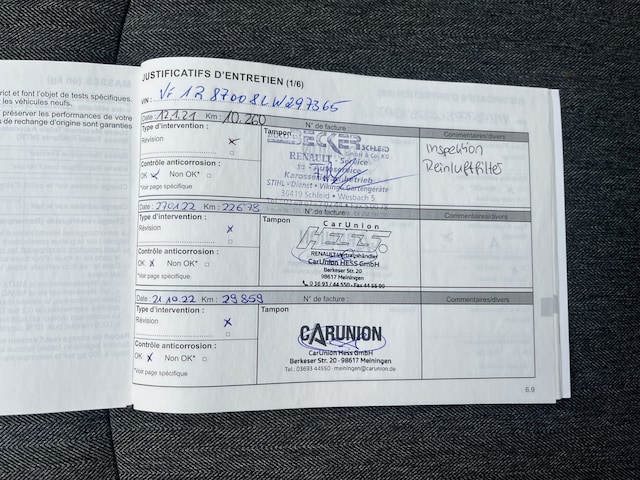 rict et font l'objet de tests spécifiques.
r les véhicules neufs.
préserver les performances de votre
s de rechange d'origine sont garanties
JUSTIFICATIFS D'ENTRETIEN (1/6)
VIN :
Date : 12.1.21 Km : 10.260 N° de facture : Commentaires/divers
Type d'intervention : Tampon
Révision x
ECKER SCHLEID
GmbH & Co. KG
RENAULT - Service
Karosseriefachbetrieb
STIHL - Dienst • Viking Gartengeräte
36419 Schleid • Wesbach 5
Inspektion
Reinluftfilter
Contrôle anticorrosion :
OK ✓ Non OK* □
*Voir page spécifique
Date : 27.01.22 Km : 22678 N° de facture : Commentaires/divers
Type d'intervention : Tampon
Révision x
□
CarUnion
HESS
RENAULT-Vertragshändler
CarUnion HESS GmbH
Berkeser Str. 20
98617 Meiningen
0 36 93 / 44 550 · Fax 44 55 90
Contrôle anticorrosion :
OK x Non OK* □
*Voir page spécifique
Date : 21.10.22 Km : 29859 N° de facture : Commentaires/divers
Type d'intervention : Tampon
Révision x
□
CARUNION
CarUnion Hess GmbH
Berkeser Str. 20 · 98617 Meiningen
Tel.: 03693 44550 · meiningen@carunion.de
Contrôle anticorrosion :
OK x Non OK* □
*Voir page spécifique
6.9